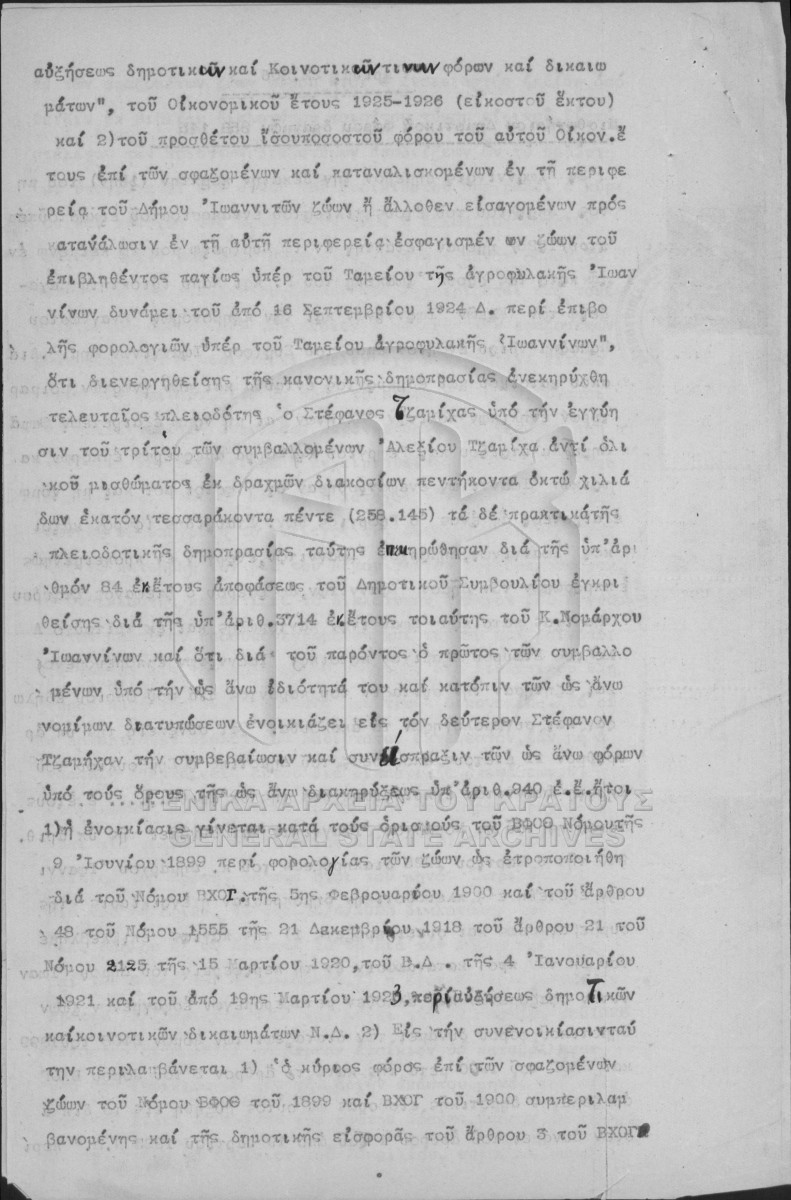 αὐξήσεως δημοτικῶν καί Κοινοτικῶν τινων φόρων καί δικαιω
μάτων", τοῦ Οἰκονομικοῦ ἔτους 1925-1926 (εἰκοστοῦ ἕκτου)
καί 2)τοῦ προσθέτου ἰσουποσοστοῦ φόρου τοῦ αὐτοῦ Οἰκον.ἔ
τους ἐπί τῶν σφαζομένων καί καταναλισκομένων ἐν τῇ περιφε
ρείᾳ τοῦ Δήμου Ἰωαννιτῶν ζώων ἤ ἄλλοθεν εἰσαγομένων πρός
κατανάλωσιν ἐν τῇ αὐτῇ περιφερείᾳ ἐσφαγισμένων ζώων τοῦ
ἐπιβληθέντος παγίως ὑπέρ τοῦ Ταμείου τῆς ἀγροφυλακῆς Ἰωαν
νίνων δυνάμει τοῦ ἀπό 16 Σεπτεμβρίου 1924 Δ. περί ἐπιβο
λῆς φορολογιῶν ὑπέρ τοῦ Ταμείου ἀγροφυλακῆς Ἰωαννίνων",
ὅτι διενεργηθείσης τῆς κανονικῆς δημοπρασίας ἀνεκηρύχθη
τελευταῖος πλειοδότης ὁ Στέφανος Τζαμίχας ὑπό τήν ἐγγύη
σιν τοῦ τρίτου τῶν συμβαλλομένων Ἀλεξίου Τζαμίχα ἀντί ὁλι
κοῦ μισθώματος ἐκ δραχμῶν διακοσίων πεντήκοντα ὀκτώ χιλιά
δων ἑκατόν τεσσαράκοντα πέντε (258.145) τά δέ πρακτικάτῆς
πλειοδοτικῆς δημοπρασίας ταύτης ἐπεκηρώθησαν διά τῆς ὑπ'ἀρι
θμόν 84 ἐκἔτους ἀποφάσεως τοῦ Δημοτικοῦ Συμβουλίου ἐγκρι
θείσης διά τῆς ὑπ'ἀριθ.3714 ἐκἔτους τοιαύτης τοῦ Κ.Νομάρχου
Ἰωαννίνων καί ὅτι διά τοῦ παρόντος ὁ πρῶτος τῶν συμβαλλο
μένων ὑπό τήν ὡς ἄνω ἰδιότητά του καί κατόπιν τῶν ὡς ἄνω
νομίμων διατυπώσεων ἐνοικιάζει εἰς τόν δεύτερον Στέφανον
Τζαμήχαν τήν συμβεβαίωσιν καί συνείσπραξιν τῶν ὡς ἄνω φόρων
ὑπό τούς ὅρους τῆς ὡς ἄνω διακηρύξεως ὑπ'ἀριθ.940 ἐ.ἔ.ἤτοι
ΓΕΝΙΚΑ ΑΡΧΕΙΑ ΤΟΥ ΚΡΑΤΟΥΣ
1)ἡ ἐνοικίασις γίνεται κατά τούς ὁρισμούς τοῦ ΒΦΟΘ Νόμουτῆς
GENERAL STATE ARCHIVES
9 Ἰουνίου 1899 περί φορολογίας τῶν ζώων ὡς ἐτροποποιήθη
διά τοῦ Νόμου ΒΧΟΓ.τῆς 5ης Φεβρουαρίου 1900 καί τοῦ ἄρθρου
48 τοῦ Νόμου 1555 τῆς 21 Δεκεμβρίου 1918 τοῦ ἄρθρου 21 τοῦ
Νόμου 2125 τῆς 15 Μαρτίου 1920,τοῦ Β.Δ . τῆς 4 Ἰανουαρίου
1921 καί τοῦ ἀπό 19ης Μαρτίου 1923,περίαὐξήσεως δημοτικῶν
καίκοινοτικῶν δικαιωμάτων Ν.Δ. 2) Εἰς τήν συνενοικίασινταύ
την περιλαμβάνεται 1) ὁ κύριος φόρος ἐπί τῶν σφαζομένων
ζώων τοῦ Νόμου ΒΦΟΘ τοῦ 1899 καί ΒΧΟΓ τοῦ 1900 συμπεριλαμ
βανομένης καί τῆς δημοτικῆς εἰσφορᾶς τοῦ ἄρθρου 3 τοῦ ΒΧΟΓ